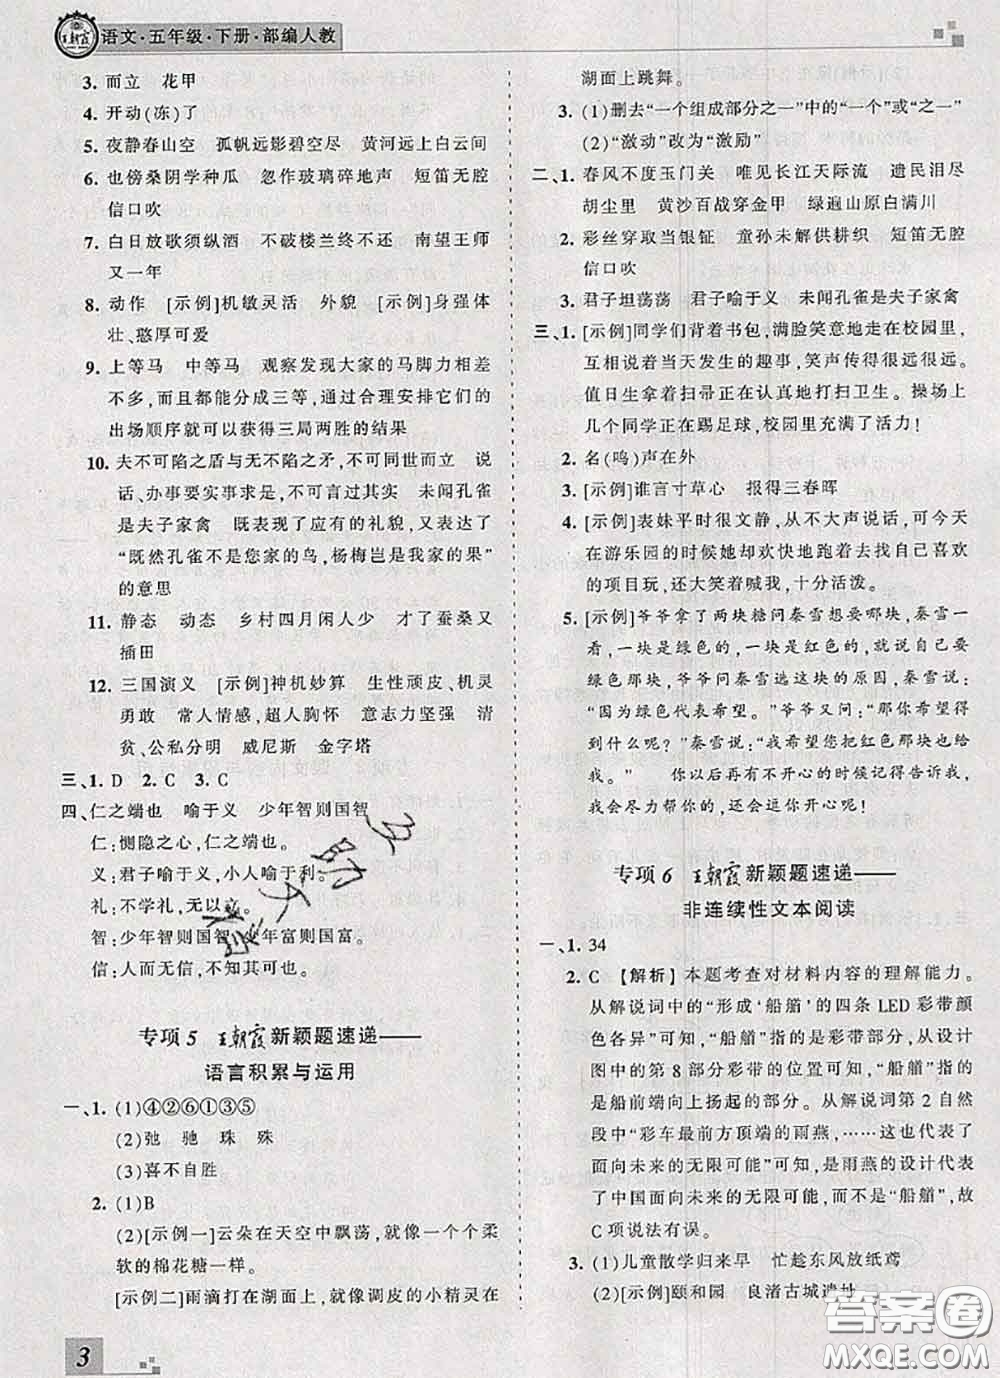 王朝霞
语文·五年级·下册·部编人教
3. 而立 花甲
4. 开动(冻)了
5. 夜静春山空 孤帆远影碧空尽 黄河远上白云间
6. 也傍桑阴学种瓜 忽作玻璃碎地声 短笛无腔
信口吹
7. 白日放歌须纵酒 不破楼兰终不还 南望王师
又一年
8. 动作 [示例]机敏灵活 外貌 [示例]身强体
壮、憨厚可爱
9. 上等马 中等马 观察发现大家的马脚力相差
不多,而且都能分成三等,通过合理安排它们的
出场顺序就可以获得三局两胜的结果
10. 夫不可陷之盾与无不陷之矛,不可同世而立 说
话、办事要实事求是,不可言过其实 未闻孔雀
是夫子家禽 既表现了应有的礼貌,又表达了
“既然孔雀不是您家的鸟,杨梅岂是我家的果”
的意思
11. 静态 动态 乡村四月闲人少 才了蚕桑又
插田
12. 三国演义 [示例]神机妙算 生性顽皮、机灵
勇敢 常人情感,超人胸怀 意志力坚强 清
贫、公私分明 威尼斯 金字塔
三、1. D 2. C 3. C
四、仁之端也 喻于义 少年智则国智
仁:恻隐之心,仁之端也。
义:君子喻于义,小人喻于利。
礼:不学礼,无以立。
智:少年智则国智,少年富则国富。
信:人而无信,不知其可也。
专项5 王朝霞新颖题速递——
语言积累与运用
一、1. (1)④②⑥①③⑤
(2)弛 驰 珠 殊
(3)喜不自胜
2. (1)B
(2)[示例一]云朵在天空中飘荡,就像一个个柔
软的棉花糖一样。
[示例二]雨滴打在湖面上,就像调皮的小精灵在
湖面上跳舞。
3. (1)删去“一个组成部分之一”中的“一个”或“之一”
(2)“激动”改为“激励”
二、1. 春风不度玉门关 唯见长江天际流 遗民泪尽
胡尘里 黄沙百战穿金甲 绿遍山原白满川
2. 彩丝穿取当银钲 童孙未解供耕织 短笛无腔
信口吹
3. 君子坦荡荡 君子喻于义 未闻孔雀是夫子家禽
三、1. [示例]同学们背着书包,满脸笑意地走在校园里,
互相说着当天发生的趣事,笑声传得很远很远。
值日生拿着扫帚正在认真地打扫卫生。操场上
几个同学正在踢足球,校园里充满了活力!
2. 名(鸣)声在外
3. [示例]谁言寸草心 报得三春晖
4. [示例]表妹平时很文静,从不大声说话,可今天
在游乐园的时候她却欢快地跑着去玩自己喜欢
的项目玩,还大笑着喊我,十分活泼。
5. [示例]爷爷拿了两块糖问秦雪想要哪块,秦雪一
看,一块是绿色的,一块是红色的,就说自己想要
绿色的那块,爷爷问秦雪选这块的原因,秦雪说:
“因为绿色代表希望。”爷爷又问:“那你希望得
到什么呢?”秦雪说:“我希望您把红色那块也给
我。” 你以后再有不开心的时候记得告诉我,
我会尽力帮你的,还会逗你开心呢!
专项6 王朝霞新颖题速递——
非连续性文本阅读
一、1. 34
2. C 【解析】本题考查对材料内容的理解能力。
从解说词中的“形成‘船艏’的四条LED彩带颜
色各异”可知,“船艏”指的是彩带部分,从设计
图中的第8部分彩带的设计可知,“船艏”指的
是船前端向上扬起的部分。从解说词第2自然
段中“彩车最前方顶端的雨燕,……这也代表了
面向未来的无限可能”可知,是雨燕的设计代表
了中国面向未来的无限可能,而不是“船艏”,故
C项说法有误。
3. (1)儿童散学归来早 忙趁东风放纸鸢
(2)[示例]颐和园 良渚古城遗址
3
答案圈
MXQE.COM